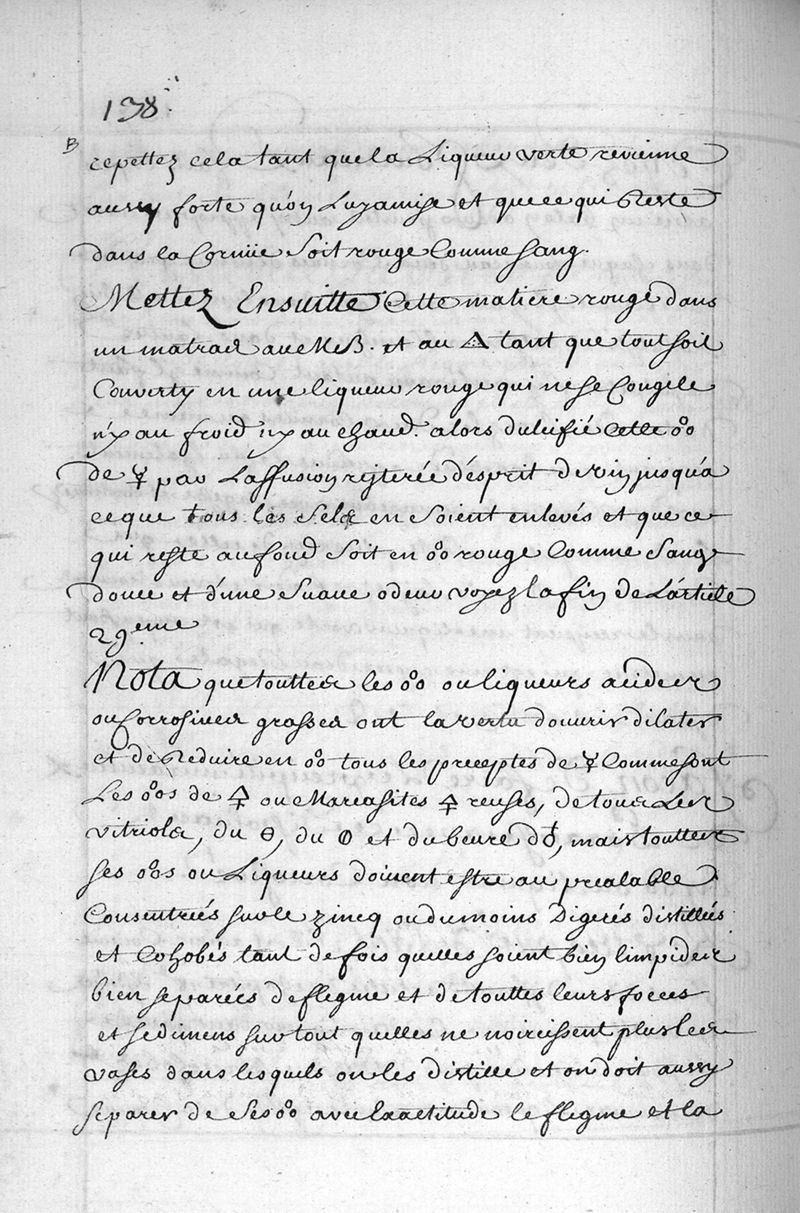 138.
B
repettez cela tant que la Liqueur verte revienne
aussy forte qu'on Luy a mise et que ce qui Reste
dans la Cornüe soit rouge Comme sang.
Mettez Ensuitte Cette matière rouge dans
un matras au MB. et au 🜂 tant que tout soit
Converty en une liqueur rouge qui ne se Congele
n'y au froid n'y au chaud. alors dulcifié cette o°o
de ☿ par Laffusion rejterée d'esprit de vin jusqu'a
ce que tous les sels en soient enlevés et que ce
qui reste au fond soit en o°o rouge Comme sang
douce et d'une suave odeur voyez la fin de L'article
29.eme
Nota que touttes les o°o ou liqueurs acides
ou Corrosives grasses ont la vertu d'ouvrir dilater
et de Reduire en o°o tous les preceptes de ☿ Comme sont
Les o°os de 🜍 ou Marcasites 🜍 reuses, de tous Les
vitriols, du θ, du 🜕 et du beure d♁, mais touttes
ses o°os ou Liqueurs doivent estre au prealable
Consentrées sur le zincq ou du moins Digerés distillées
et Cohobés tant de fois quelles soient bien limpides
bien separées de flegme et de touttes leurs feces
et sedimens sur tout quelles ne noircissent plus les
vases dans lesquels on les distille et on doit aussy
separer de ses o°o avec Exactitude le flegme et la